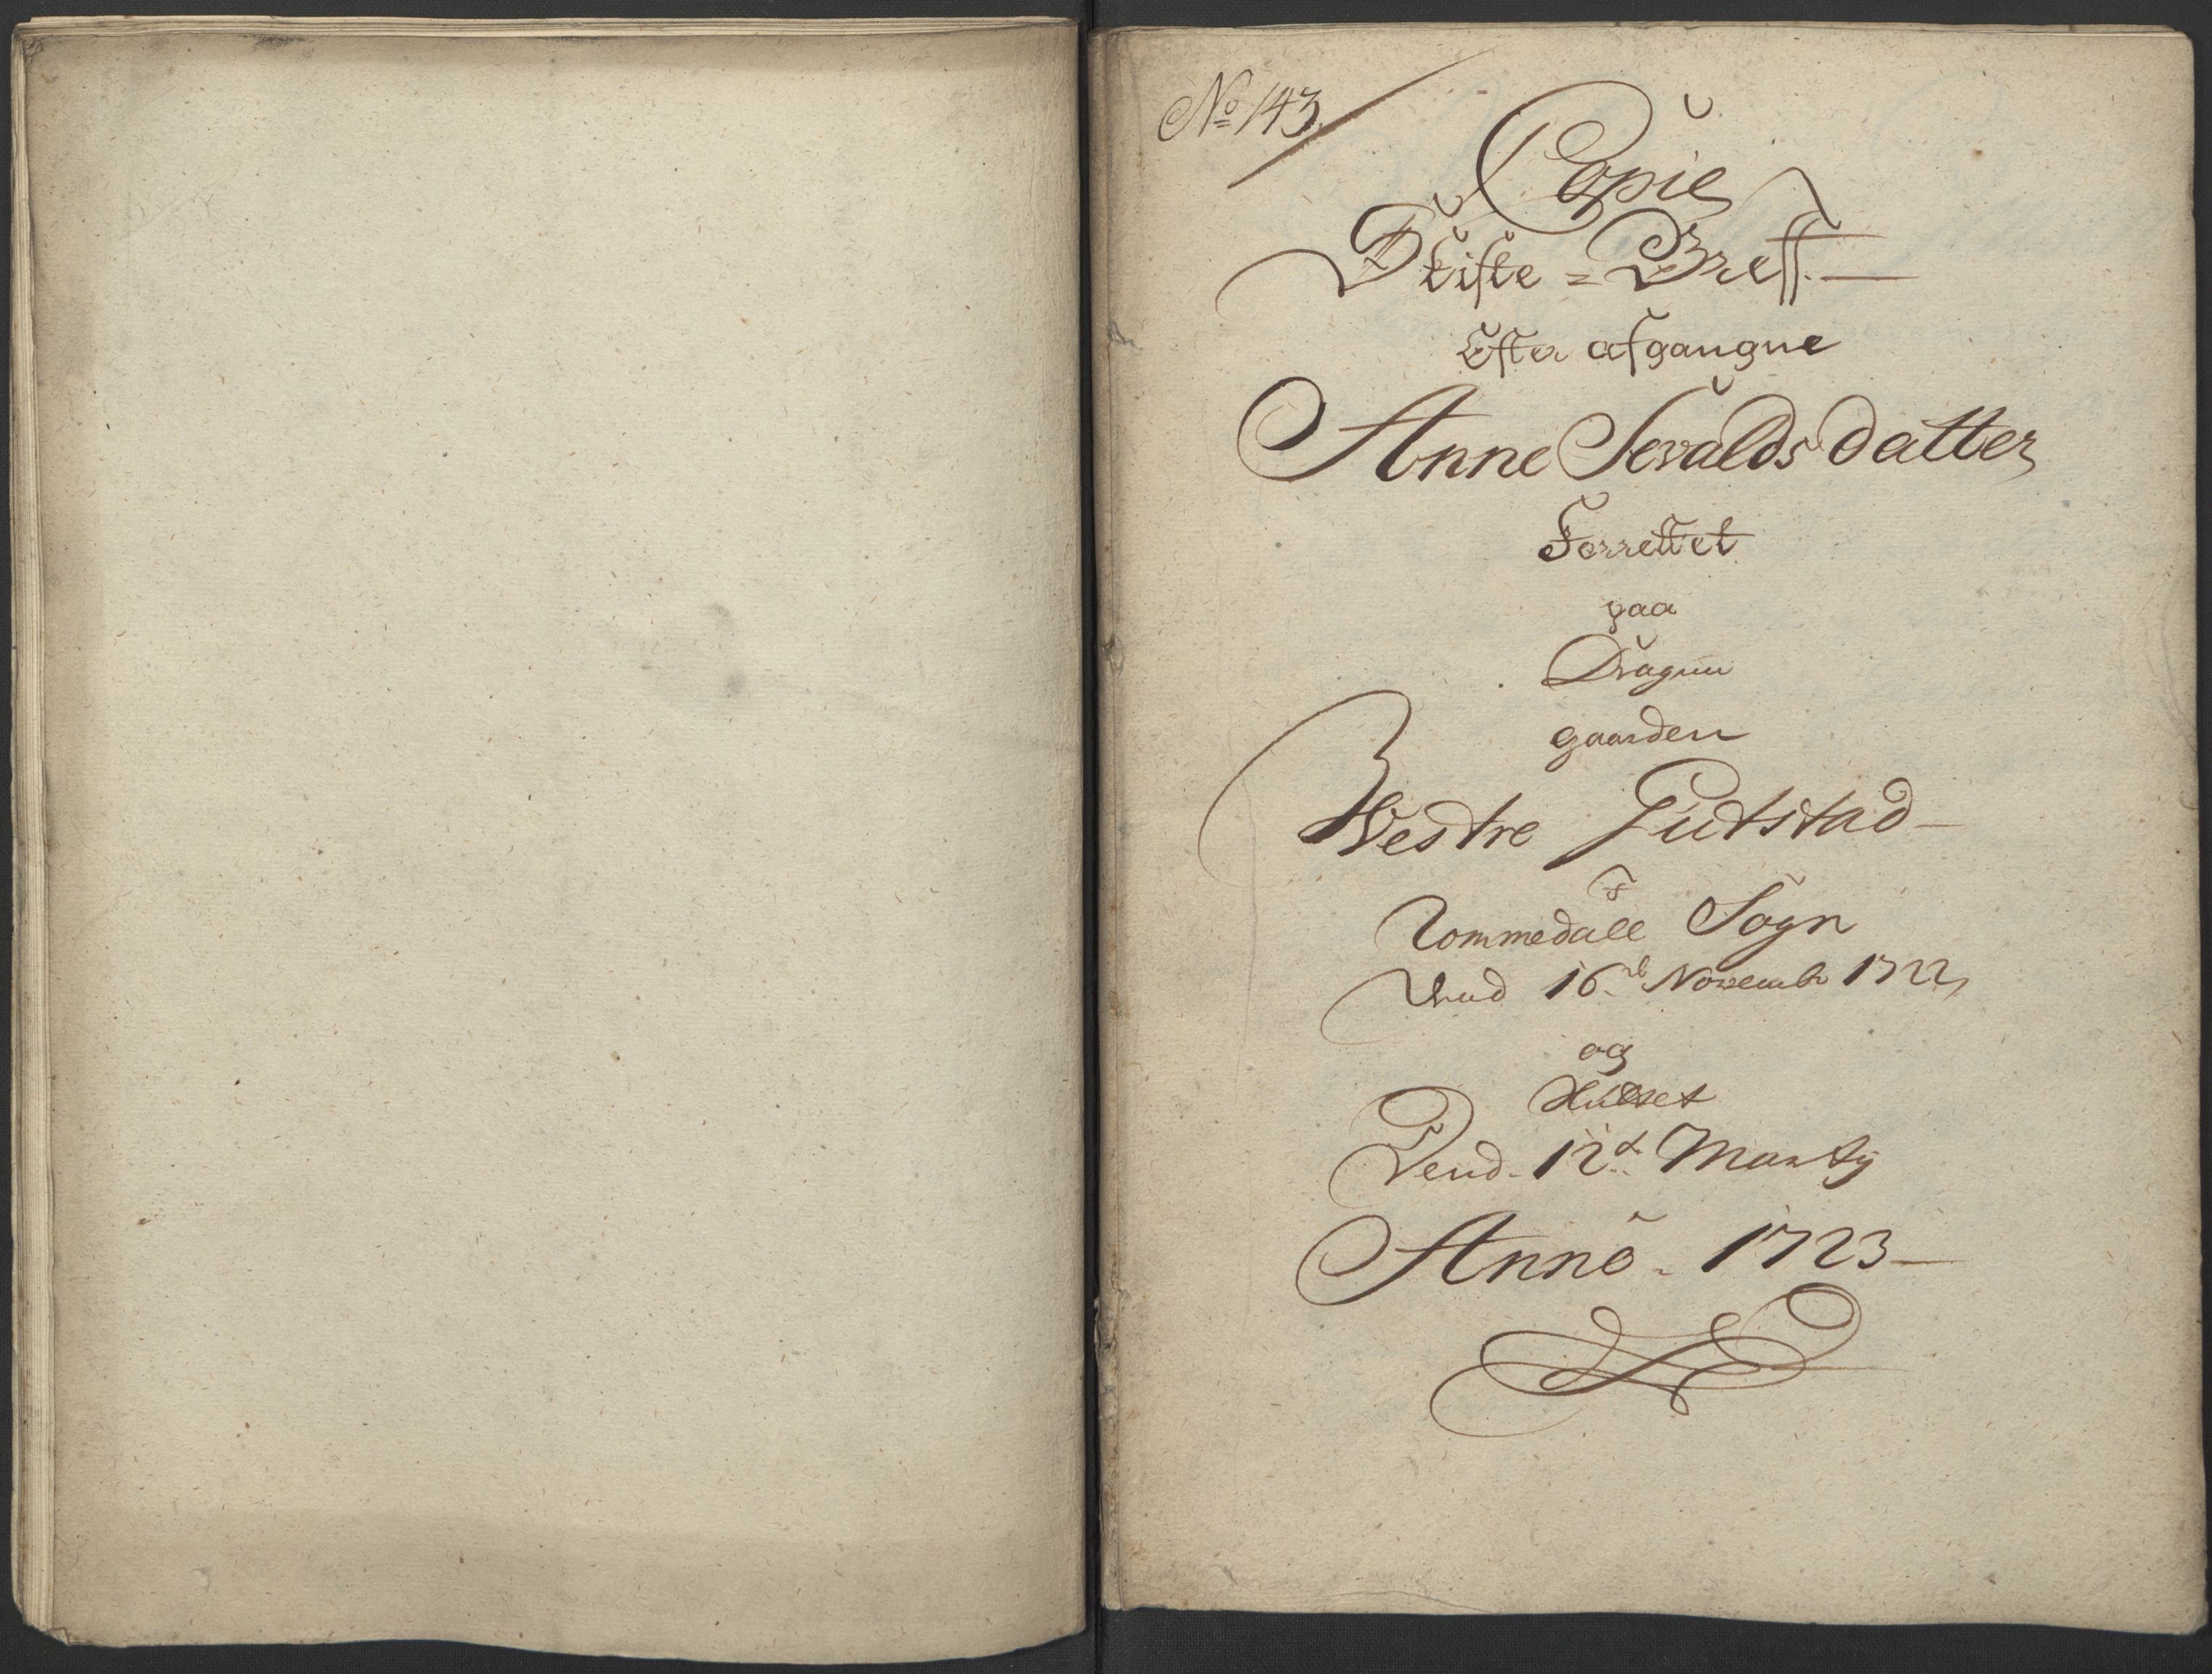 No 143.
Copie
Skifte = Breff.
Efter afgangne
Anne Sevalds datter
Forrettet
paa
Dragun
gaarden
Westre Gutstad
i
Rommedall Sogn
Dend 16de Novembr 1722,
og
Sluttet
Dend. 12te Marty
Anno. 1723